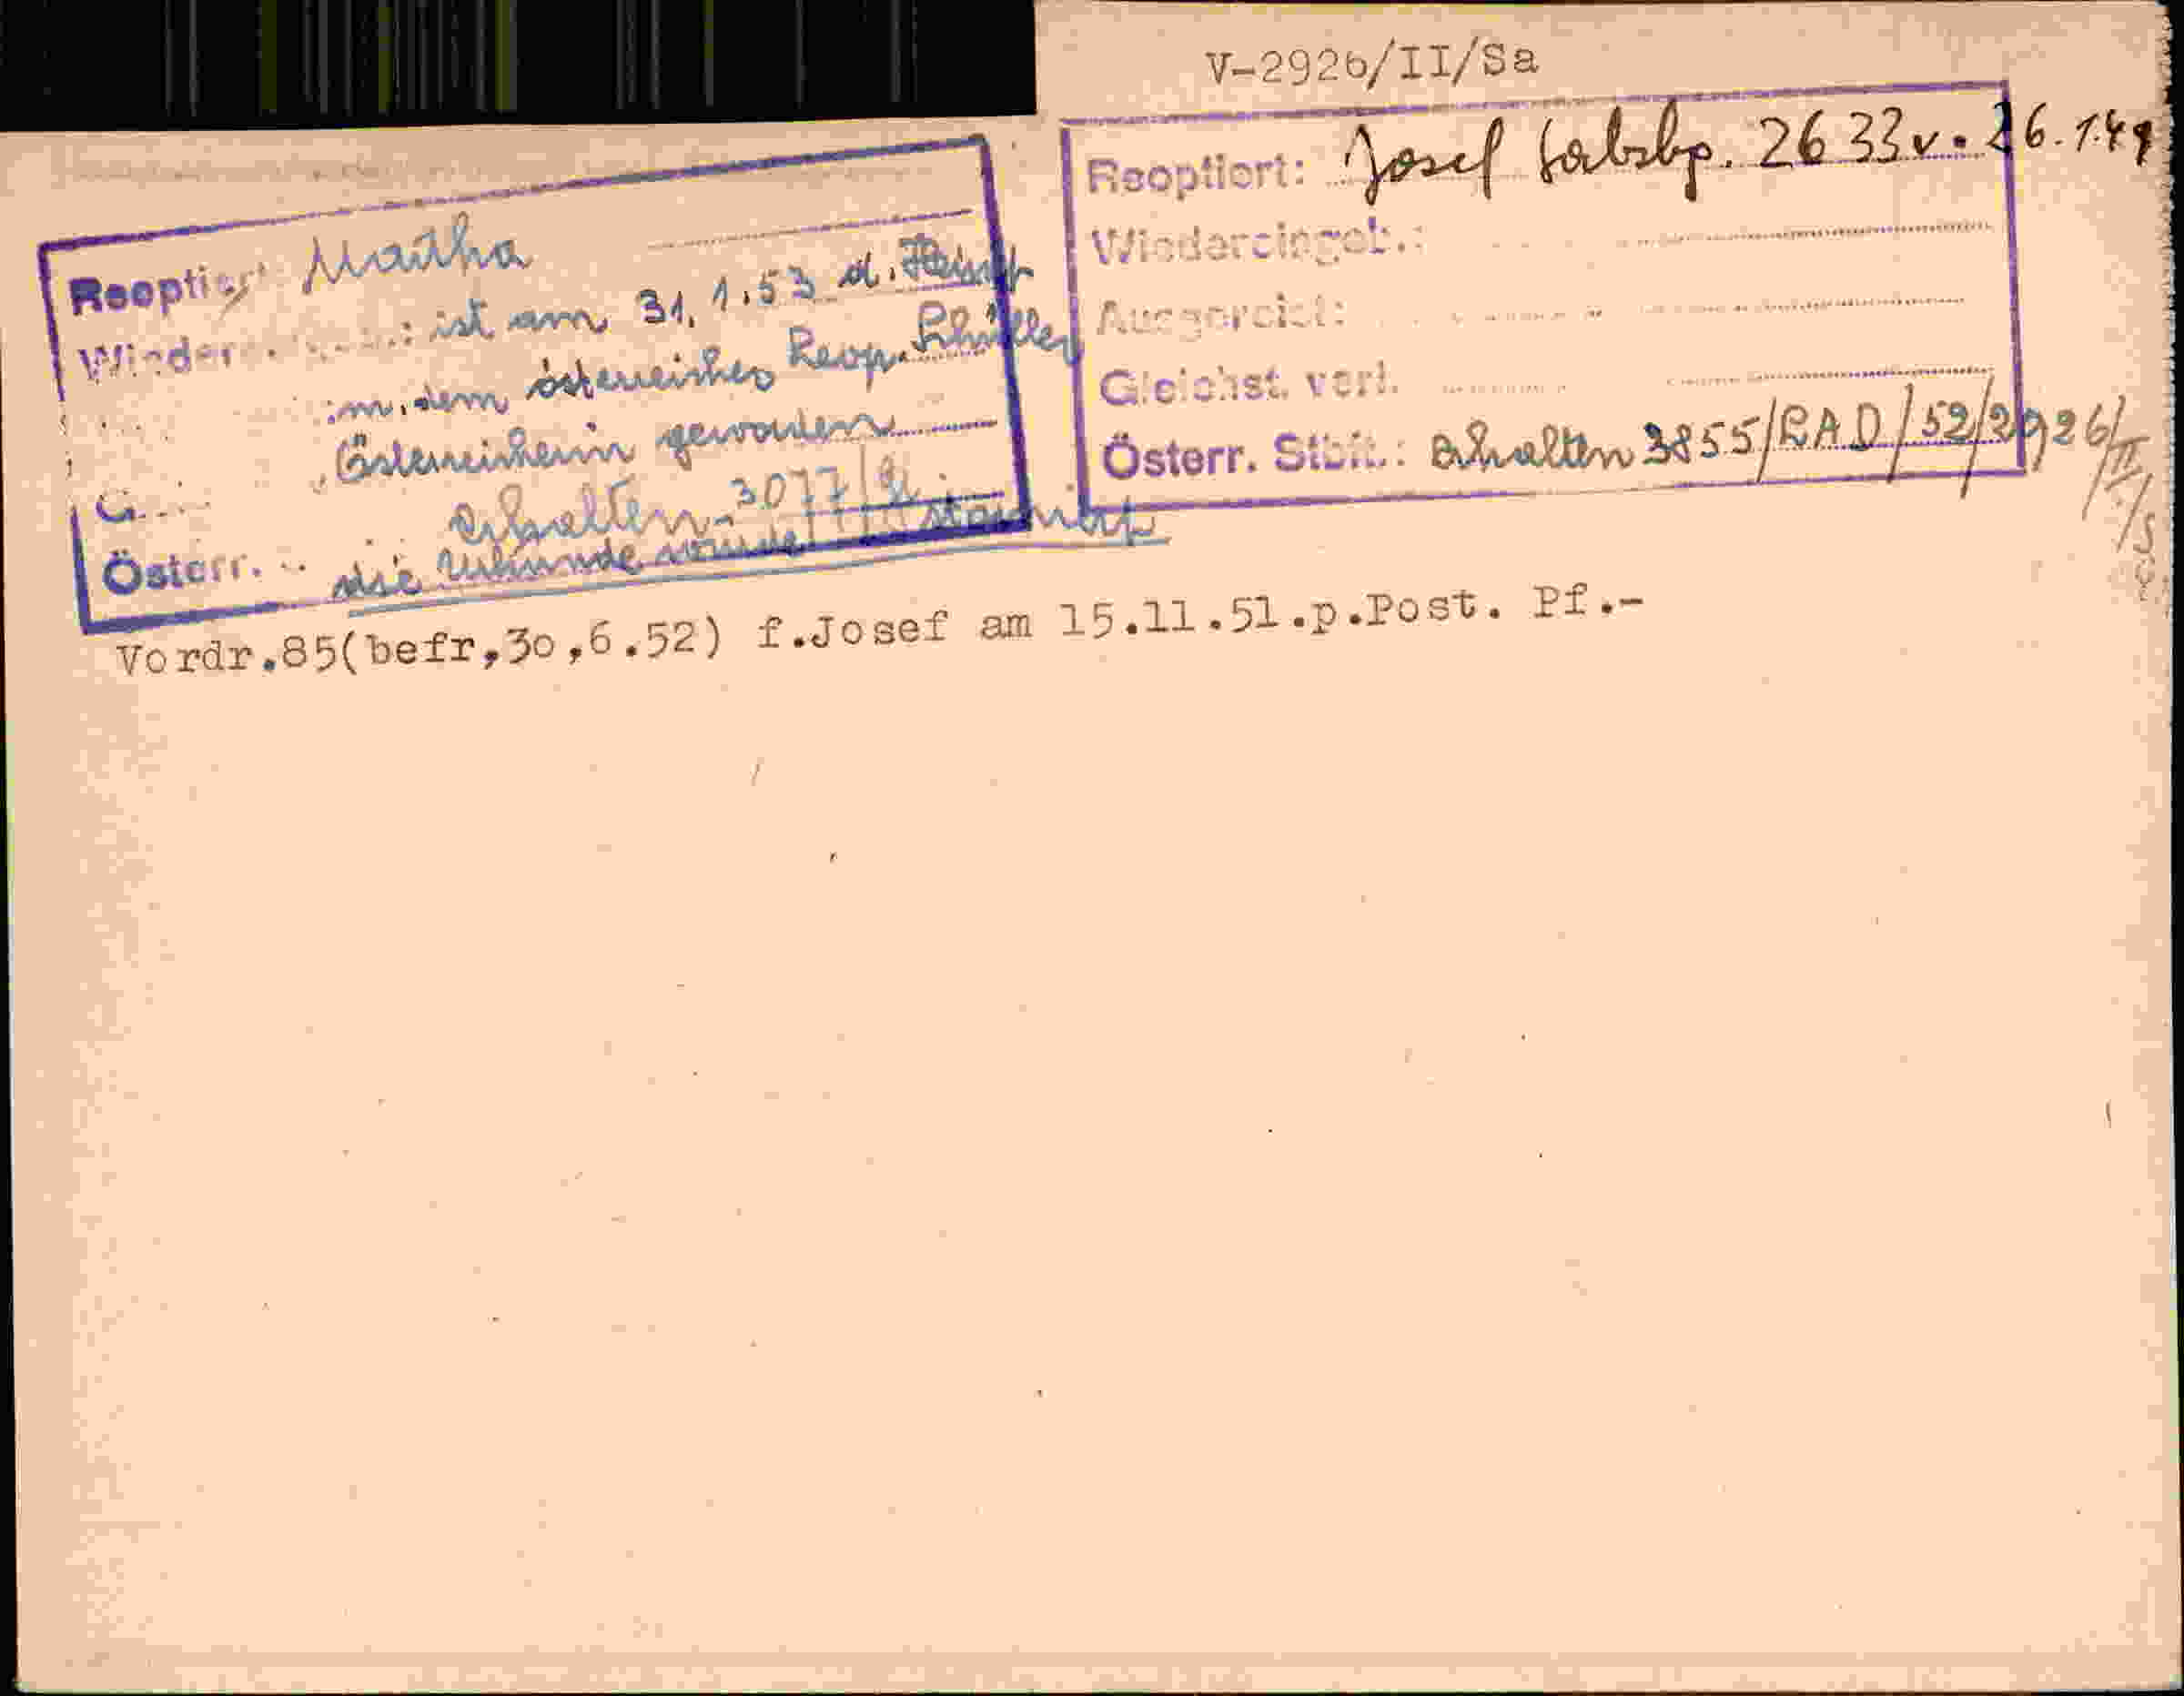 V-2926/II/Sa
Reoptiert: Josef 2633 v. 26.1.49
Wiedereingeb.:
Ausgereist:
Gleichst. verl.
Österr. Stbft.: erhalten 3855/RAD/52/2926/II/S
Reoptiert Martha
Wieder ist am 31.1.53 d.
m. dem österreicher Reop. Schüller
Österreicherin geworden
erhalten 3077
Österr. die Urkunde wurde
Vordr.85(befr,30,6.52) f.Josef am 15.11.51.p.Post. Pf.-